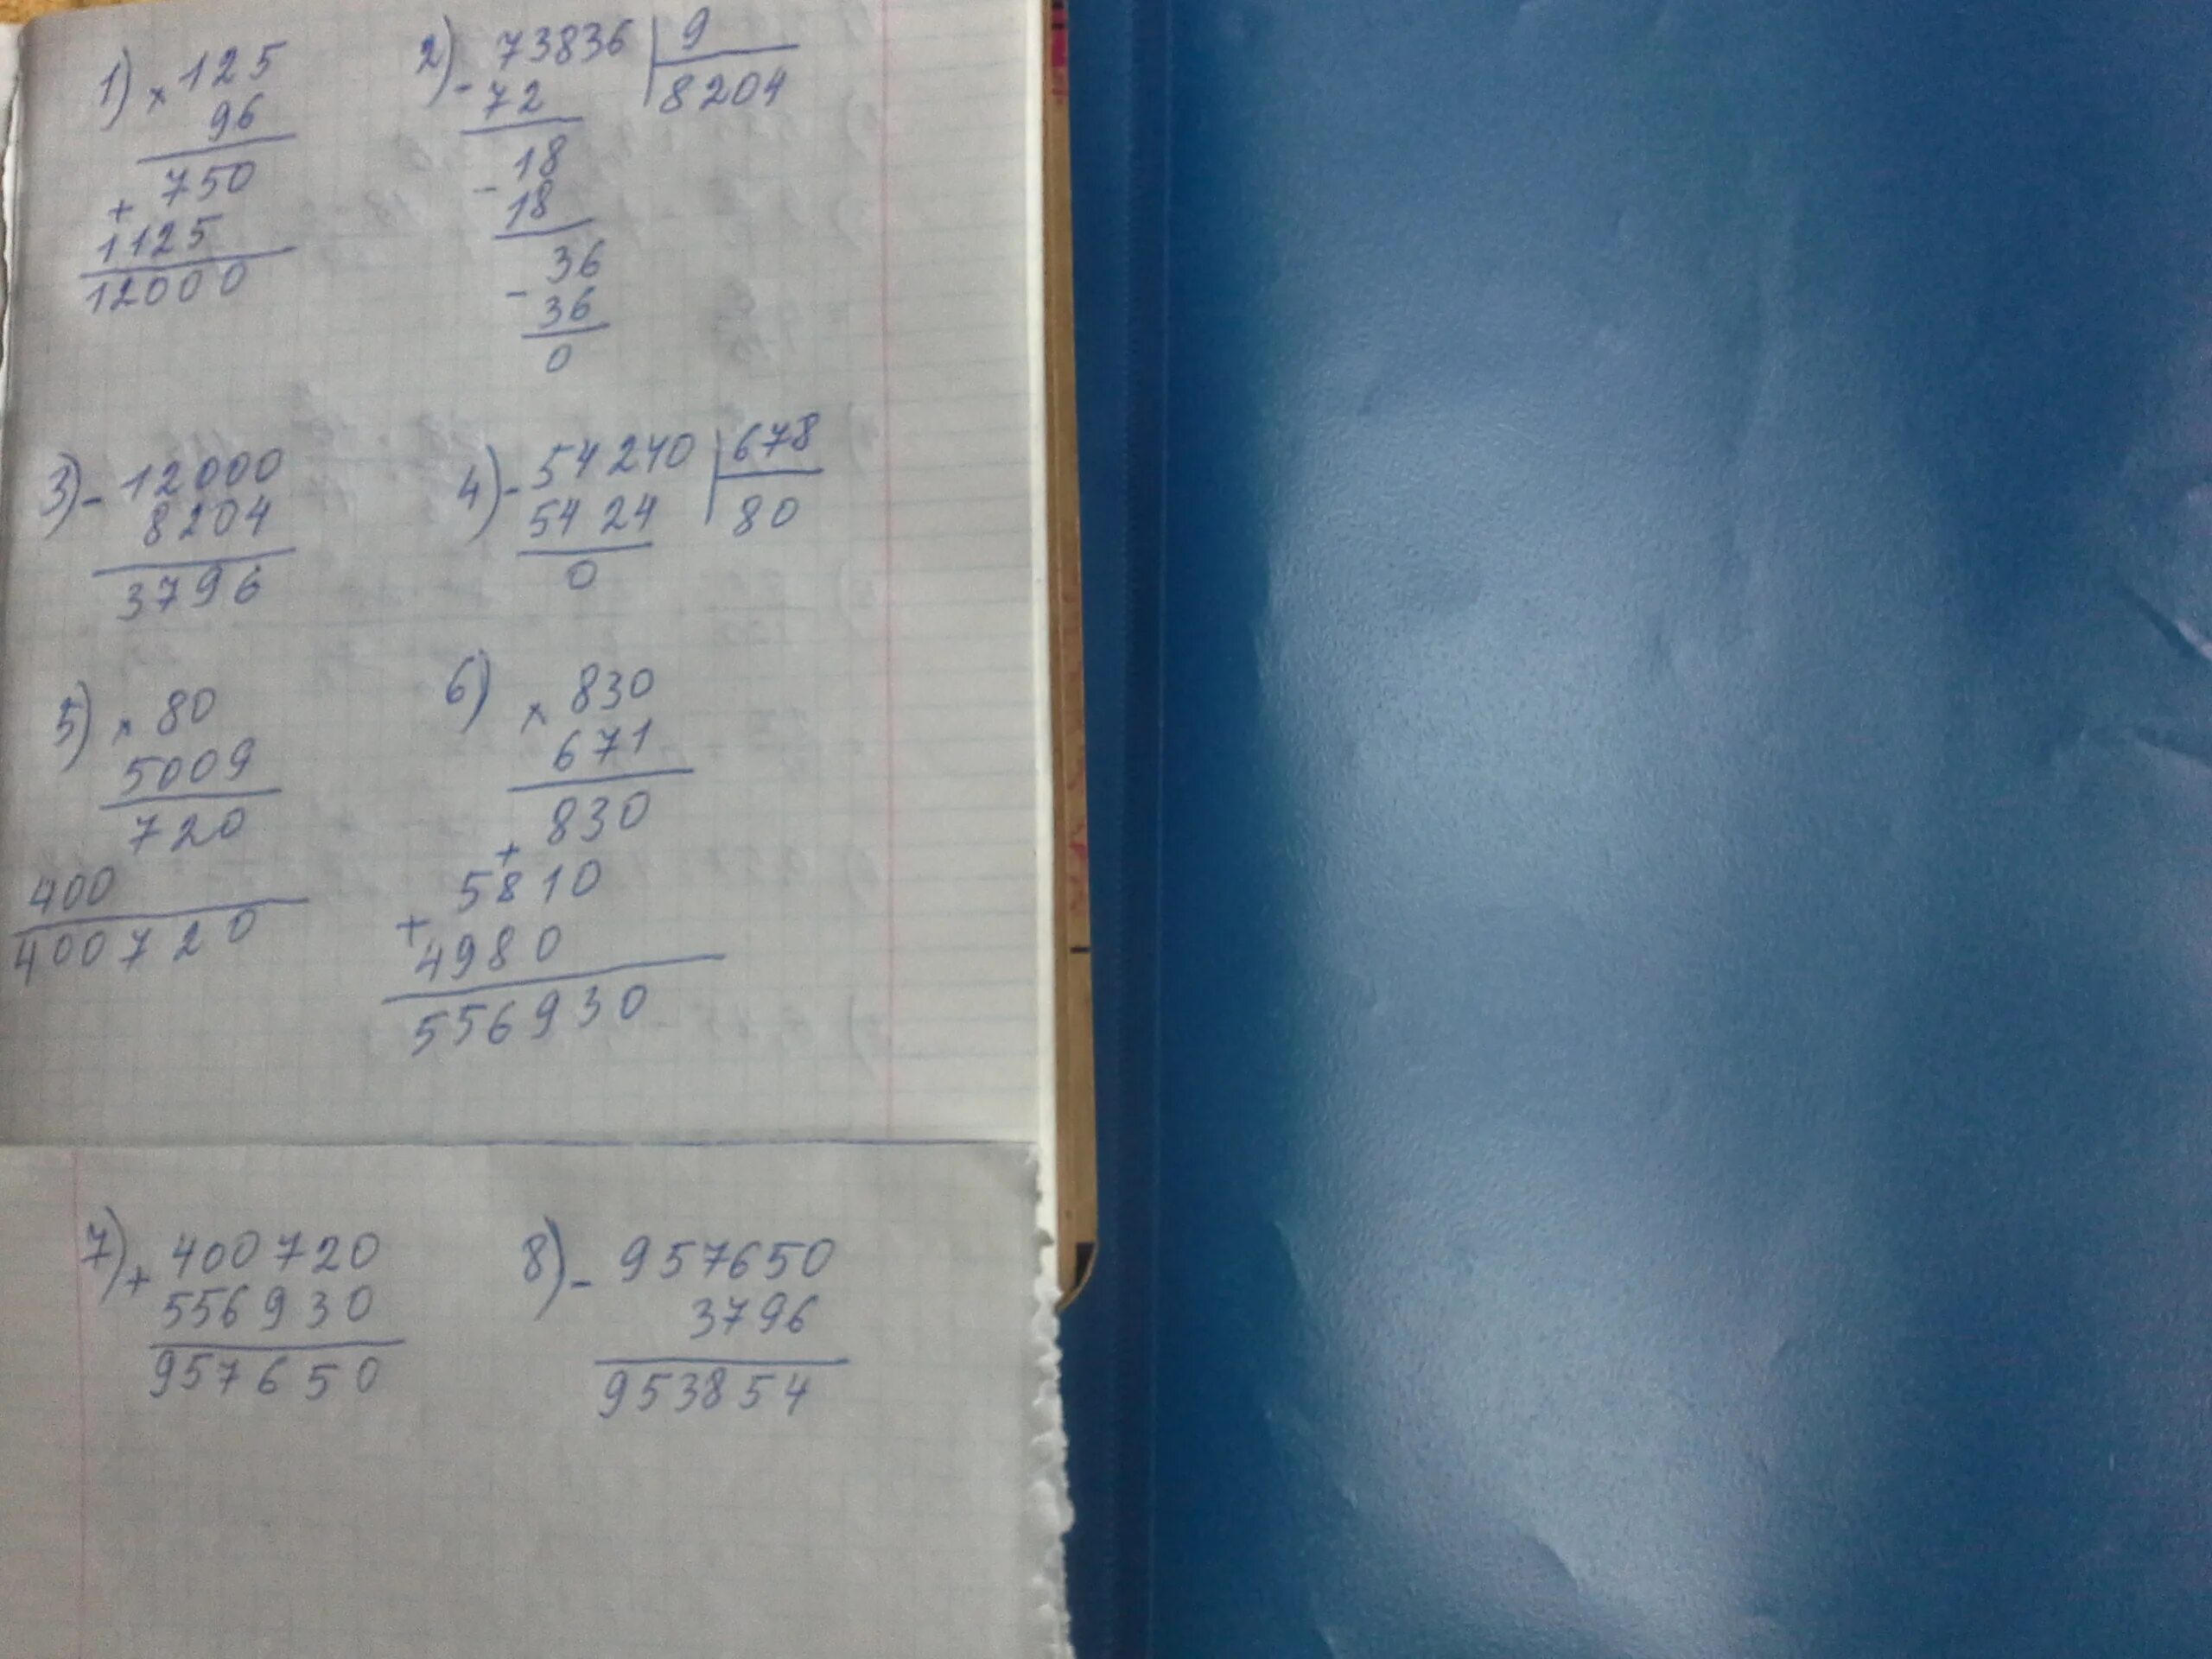 1) × 125
96
750
+
1125
12000
2) - 73836 | 9
72 8204
18
-
18
36
-
36
0
3) - 12000
8204
3796
4) - 54240 | 678
5424 80
0
5) × 80
5009
720
400
400720
6) × 830
671
830
+
5810
+
4980
556930
7) + 400720
556930
957650
8) - 957650
3796
953854